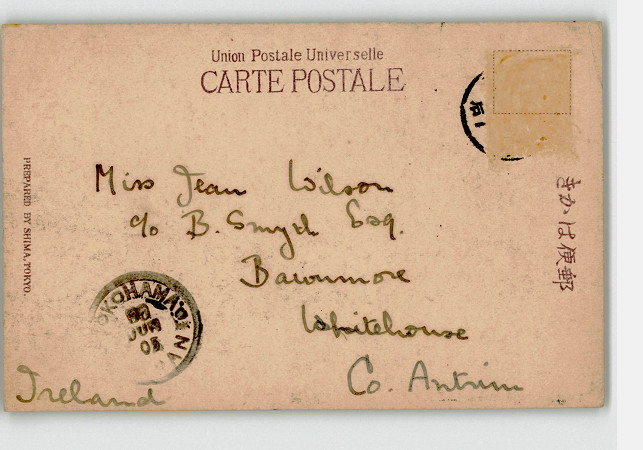 Union Postale Universelle
CARTE POSTALE
Miss Jean Wilson
c/o B. Smyth Esq.
Bawnmore
Whitehouse
Co. Antrim
Ireland
PREPARED BY SHIMA, TOKYO.
きかは便郵
YOKOHAMA
JUN
05